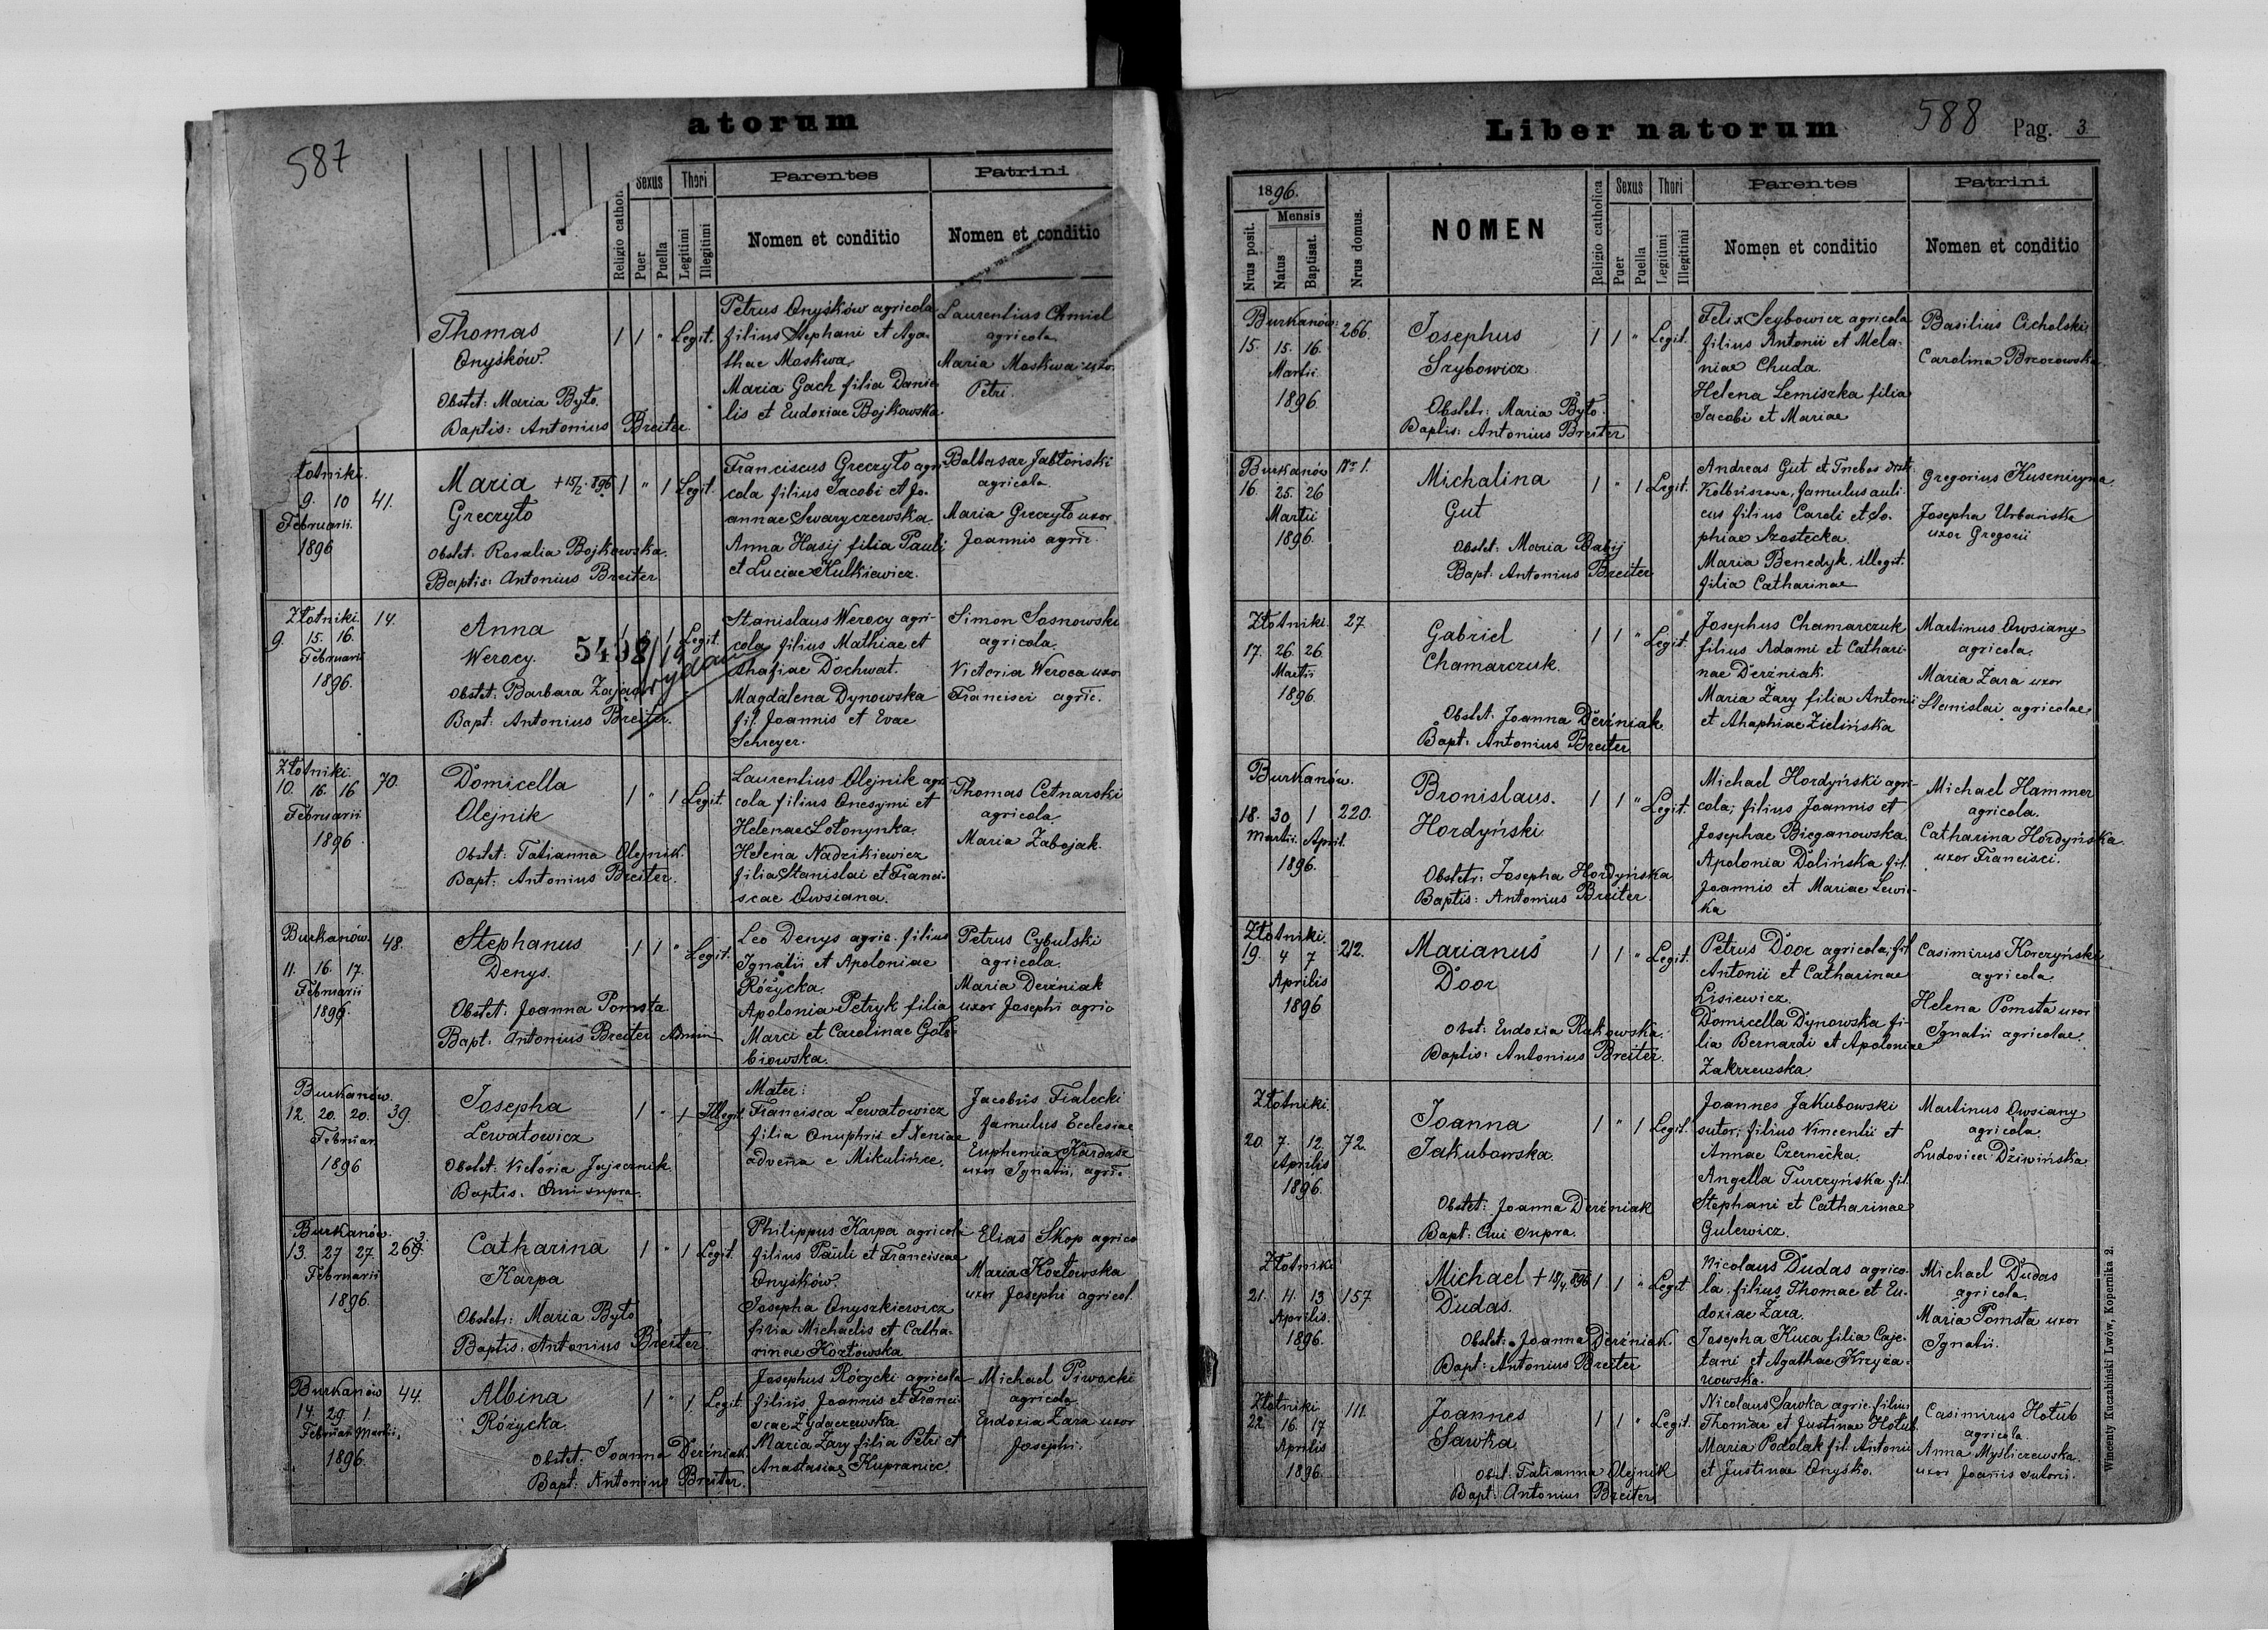 587
atorum
Religio cathol
Sexus
Puer
Puella
Thori
Legitimi
Illegitimi
Parentes
Nomen et conditio
Patrini
Nomen et conditio
Thomas
Onyśków.
Obstet: Maria Byto.
Baptis: Antonius Breiter.
1 1 " Legit.
Petrus Onyśków agricola
filius Stephani et Aga-
thae Moskwa
Maria Gach filia Danie-
lis et Eudoxiae Bojkowska
Laurentius Chmiel
agricola
Maria Moskwa uxor
Petri.
łotniki.
9 10 41.
Februarii.
1896
Maria + 15/2 896
Greczyło
Obstet: Rosalia Bojkowska.
Baptis: Antonius Breiter
1 " 1 Legit.
Franciscus Greczyło agri-
cola filius Jacobi et Jo-
annae Swaryczewska.
Anna Hasij filia Pauli
et Luciae Kulkiewicz.
Baltasar Jabłoński
agricola.
Maria Greczyło uxor
Joannis agric.
Złotniki. 14.
9. 15. 16.
Februarii
1896.
Anna
Werocy. 5498/14
Obstet: Barbara Zając
Bapt: Antonius Breiter.
1 " 1 Legit.
Stanislaus Werocy agri-
cola filius Mathiae et
Ahafiae Dochwat.
Magdalena Dynowska
fil. Joannis et Evae
Schreyer.
Simon Sosnowski
agricola.
Victoria Weroca uxor
Francisci agric.
Złotniki.
10. 16. 16 70.
Februarii
1896.
Domicella
Olejnik
Obstet: Tatianna Olejnik.
Bapt: Antonius Breiter.
1 " 1 Legit.
Laurentius Olejnik agri-
cola filius Onesymi et
Helenae Łotonynka.
Helena Nadzikiewicz
filia Stanislai et Franci-
scae Owsiana.
Thomas Cetnarski
agricola.
Maria Zabojak.
Burkanów. 48.
11. 16. 17.
Februarii
1896.
Stephanus
Denys.
Obstet: Joanna Pomsta
Bapt: Antonius Breiter Admin
1 1 " Legit.
Leo Denys agric. filius
Ignatii et Apoloniae
Różycka.
Apolonia Petryk filia
Marci et Carolinae Gołę-
biowska.
Petrus Cybulski
agricola.
Maria Derżniak
uxor Josephi agric
Burkanów.
12. 20. 20. 39.
Februar.
1896
Josepha
Lewatowicz
Obstet: Victoria Jajecznik.
Baptis: Qui supra.
1 " 1 Illegit
Mater:
Francisca Lewatowicz
filia Onuphrii et Xeniae
advena e Mikulińce.
Jacobus Fialecki
famulus Ecclesiae
Euphemia Kardasz
uxor Ignatii, agric.
Burkanów.
13. 27 27. 263.
Februarii
1896.
Catharina
Karpa
Obstetr: Maria Byto
Baptis: Antonius Breiter.
1 " 1 Legit.
Philippus Karpa agricola
filius Pauli et Franciscae
Onysków.
Josepha Onyszkiewicz
filia Michaelis et Catha-
rinae Kozłowska
Elias Skop agrico
Maria Kozłowska
uxor Josephi agricol.
Burkanów 44.
14. 29 1.
Februarii Martii,
1896.
Albina
Różycka
Obstet: Joanna Derżniak.
Bapt: Antonius Breiter.
1 " 1. Legit.
Josephus Różycki agricola
filius Joannis et Franci-
scae Żydaczewska
Maria Żary filia Petri et
Anastasiae Kupraniec.
Michael Piwocki
agricola.
Eudoxia Żara uxor
Josephi.
Liber natorum
588
Pag. 3.
1896.
Nrus posit.
Mensis
Natus
Baptisat.
Nrus domus.
NOMEN
Religio catholica
Sexus
Puer
Puella
Thori
Legitimi
Illegitimi
Parentes
Nomen et conditio
Patrini
Nomen et conditio
Burkanów: 266.
15. 15. 16.
Martii
1896.
Josephus
Szybowicz
Obstetr: Maria Byto.
Baptis: Antonius Breiter
1 1 " Legit.
Felix Szybowicz agricola
filius Antonii et Mela-
niae Chuda.
Helena Lemiszka filia
Jacobi et Mariae
Basilius Cicholski
Carolina Brzozowska
Burkanów Nr. 1.
16. 25. 26
Martii
1896.
Michalina
Gut
Obstet: Maria Babij
Bapt: Antonius Breiter
1 " 1 Legit.
Andreas Gut et Trzebos distr.
Kolbuszowa, famulus auli-
cus filius Caroli et So-
phiae Szostecka.
Maria Benedyk. illegit.
filia Catharinae
Gregorius Kuseniryna
Josepha Urbańska
uxor Gregorii
Złotniki. 27.
17. 26 26.
Martii
1896.
Gabriel
Chamarczuk.
Obstet: Joanna Derżniak.
Bapt: Antonius Breiter
1 1 " Legit.
Josephus Chamarczuk
filius Adami et Cathari-
nae Derżniak.
Maria Żary filia Antonii
et Ahaphiae Zielińska
Martinus Owsiany
agricola.
Maria Żara uxor
Stanislai agricolae
Burkanów.
18. 30 1 220.
Martii. April.
1896.
Bronislaus.
Hordyński
Obstetr: Josepha Hordyńska
Baptis: Antonius Breiter.
1 1 " Legit.
Michael Hordyński agri-
cola, filius Joannis et
Josephae Bieganowska
Apolonia Dolińska fil.
Joannis et Mariae Lewic-
ka
Michael Hammer
agricola.
Catharina Hordyńska
uxor Francisci.
Złotniki.
19. 4 7 212.
Aprilis
1896
Marianus
Door
Obst: Eudoxia Rakowska.
Baptis: Antonius Breiter.
1 1 " Legit.
Petrus Door agricola, fil
Antonii et Catharinae
Lisiewicz.
Domicella Dynowska fi-
lia Bernardi et Apoloniae
Zakrzewska.
Casimirus Korczyński
agricola
Helena Pomsta uxor
Ignatii agricolae.
Złotniki.
20. 7. 12. 72.
Aprilis
1896.
Joanna
Jakubowska.
Obstet: Joanna Derżniak
Bapt: Qui supra.
1 " 1 Legit.
Joannes Jakubowski
sutor; filius Vincentii et
Annae Czernecka.
Angella Turczyńska fil.
Stephani et Catharinae
Gulewicz.
Martinus Owsiany
agricola.
Ludovica Dziwińska
Złotniki
21. 11. 13 157
Aprilis.
1896.
Michael + 18/4 896
Dudas.
Obstet: Joanna Derżniak.
Bapt: Antonius Breiter
1 1 " Legit
Nicolaus Dudas agrico-
la, filius Thomae et Eu-
doxiae Żara.
Josepha Kuca filia Caje-
tani et Agathae Krzyża-
nowska.
Michael Dudas
agricola.
Maria Pomsta uxor
Ignatii.
Złotniki 111.
22. 16. 17
Aprilis
1896.
Joannes
Sawka
Obst: Tatianna Olejnik
Bapt: Antonius Breiter
1 1 " Legit.
Nicolaus Sawka agric. filius
Thomae et Justinae Hołub
Maria Podolak fil. Antonii
et Justinae Onyśko.
Casimirus Hołub
agricola
Anna Myśliczewska
uxor Joannis sutori.
Wincenty Kuczabiński Lwów, Kopernika 2.